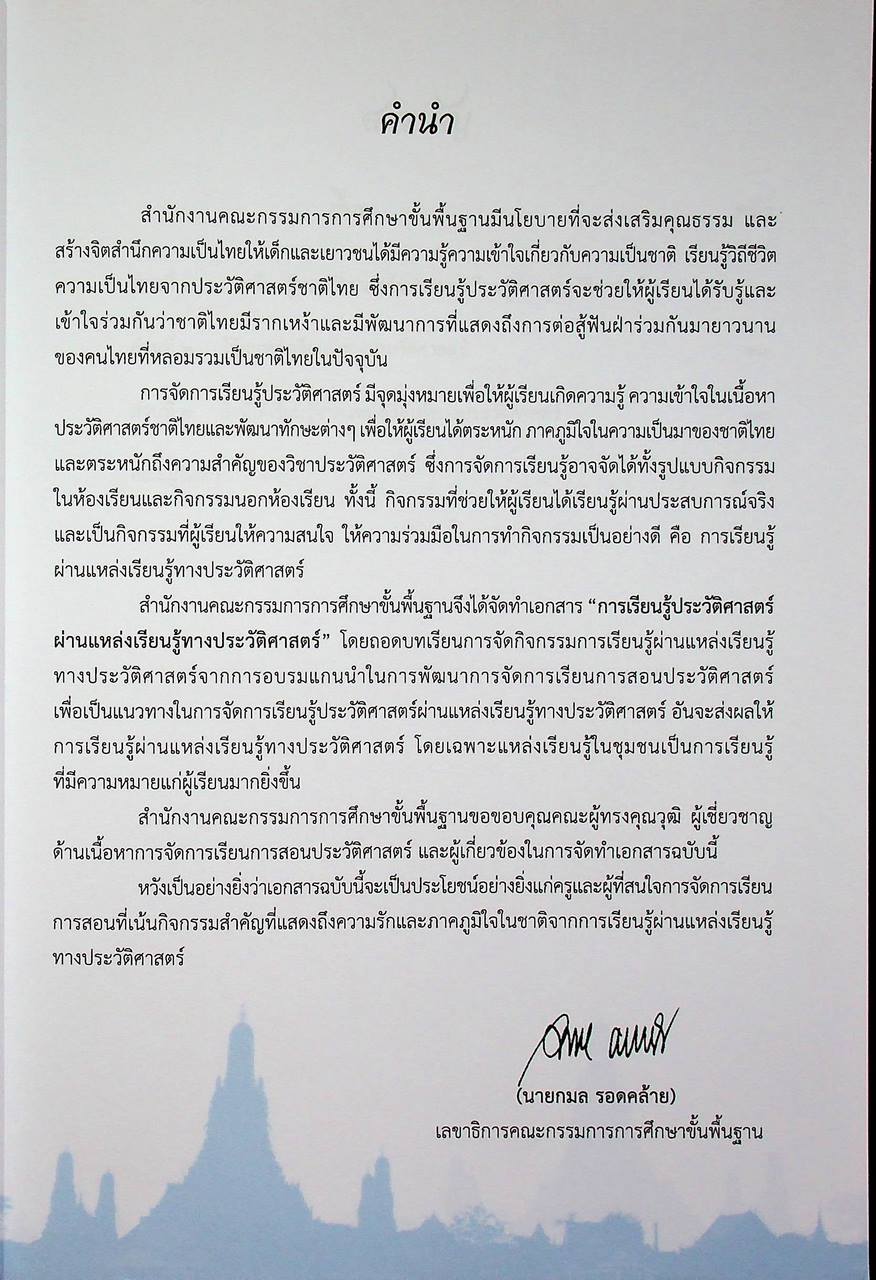 คำนำ
สำนักงานคณะกรรมการการศึกษาขั้นพื้นฐานมีนโยบายที่จะส่งเสริมคุณธรรม และ
สร้างจิตสำนึกความเป็นไทยให้เด็กและเยาวชนได้มีความรู้ความเข้าใจเกี่ยวกับความเป็นชาติ เรียนรู้วิถีชีวิต
ความเป็นไทยจากประวัติศาสตร์ชาติไทย ซึ่งการเรียนรู้ประวัติศาสตร์จะช่วยให้ผู้เรียนได้รับรู้และ
เข้าใจร่วมกันว่าชาติไทยมีรากเหง้าและมีพัฒนาการที่แสดงถึงการต่อสู้ฟันฝ่าร่วมกันมายาวนาน
ของคนไทยที่หลอมรวมเป็นชาติไทยในปัจจุบัน
การจัดการเรียนรู้ประวัติศาสตร์ มีจุดมุ่งหมายเพื่อให้ผู้เรียนเกิดความรู้ ความเข้าใจในเนื้อหา
ประวัติศาสตร์ชาติไทยและพัฒนาทักษะต่างๆ เพื่อให้ผู้เรียนได้ตระหนัก ภาคภูมิใจในความเป็นมาของชาติไทย
และตระหนักถึงความสำคัญของวิชาประวัติศาสตร์ ซึ่งการจัดการเรียนรู้อาจจัดได้ทั้งรูปแบบกิจกรรม
ในห้องเรียนและกิจกรรมนอกห้องเรียน ทั้งนี้ กิจกรรมที่ช่วยให้ผู้เรียนได้เรียนรู้ผ่านประสบการณ์จริง
และเป็นกิจกรรมที่ผู้เรียนให้ความสนใจ ให้ความร่วมมือในการทำกิจกรรมเป็นอย่างดี คือ การเรียนรู้
ผ่านแหล่งเรียนรู้ทางประวัติศาสตร์
สำนักงานคณะกรรมการการศึกษาขั้นพื้นฐานจึงได้จัดทำเอกสาร “การเรียนรู้ประวัติศาสตร์
ผ่านแหล่งเรียนรู้ทางประวัติศาสตร์” โดยถอดบทเรียนการจัดกิจกรรมการเรียนรู้ผ่านแหล่งเรียนรู้
ทางประวัติศาสตร์จากการอบรมแกนนำในการพัฒนาการจัดการเรียนการสอนประวัติศาสตร์
เพื่อเป็นแนวทางในการจัดการเรียนรู้ประวัติศาสตร์ผ่านแหล่งเรียนรู้ทางประวัติศาสตร์ อันจะส่งผลให้
การเรียนรู้ผ่านแหล่งเรียนรู้ทางประวัติศาสตร์ โดยเฉพาะแหล่งเรียนรู้ในชุมชนเป็นการเรียนรู้
ที่มีความหมายแก่ผู้เรียนมากยิ่งขึ้น
สำนักงานคณะกรรมการการศึกษาขั้นพื้นฐานขอขอบคุณคณะผู้ทรงคุณวุฒิ ผู้เชี่ยวชาญ
ด้านเนื้อหาการจัดการเรียนการสอนประวัติศาสตร์ และผู้เกี่ยวข้องในการจัดทำเอกสารฉบับนี้
หวังเป็นอย่างยิ่งว่าเอกสารฉบับนี้จะเป็นประโยชน์อย่างยิ่งแก่ครูและผู้ที่สนใจการจัดการเรียน
การสอนที่เน้นกิจกรรมสำคัญที่แสดงถึงความรักและภาคภูมิใจในชาติจากการเรียนรู้ผ่านแหล่งเรียนรู้
ทางประวัติศาสตร์
(นายกมล รอดคล้าย)
เลขาธิการคณะกรรมการการศึกษาขั้นพื้นฐาน